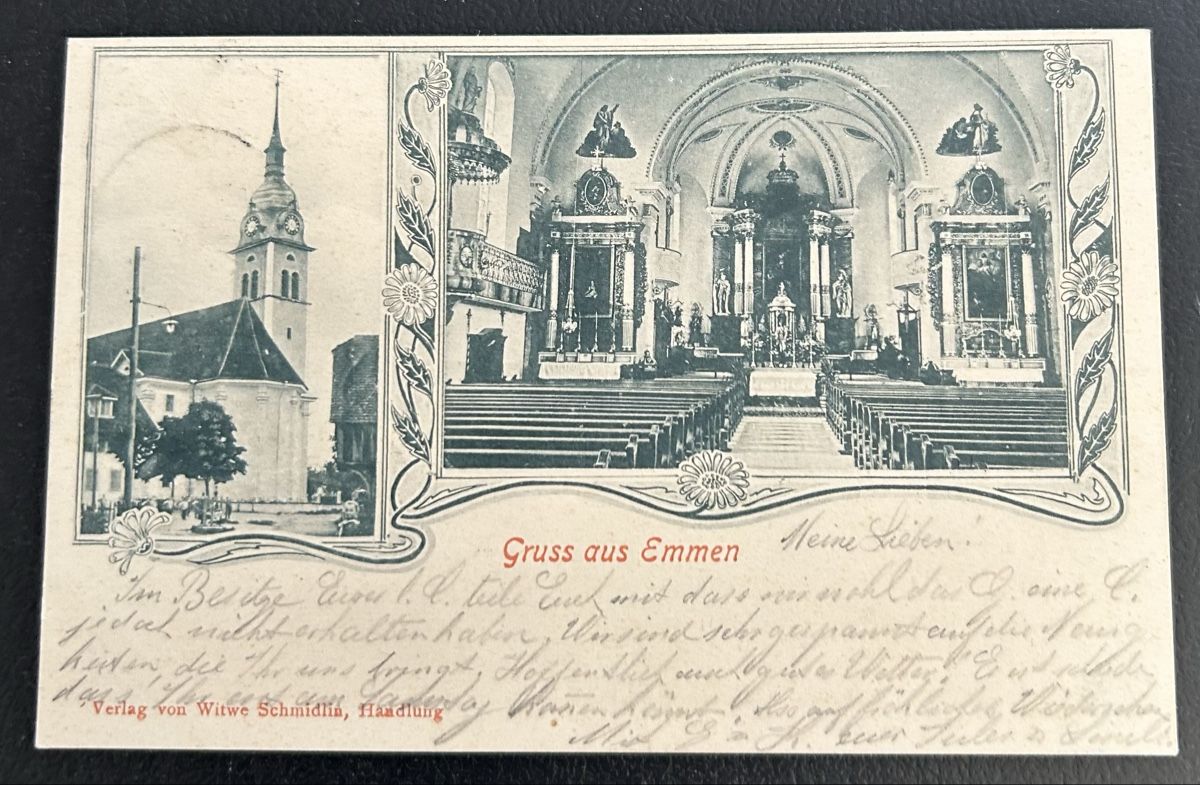 Gruss aus Emmen
Meine Lieben!
Im Besitze Eurer l. C. teile Euch mit dass wir wohl das G. eine C.
jedoch nicht erhalten haben. Wir sind sehr gespannt auf die Neuig-
keiten, die Ihr uns bringt. Hoffentlich auch gutes Wetter! Es ist schade
dass Ihr erst am Samstag kommt! Also auf
Verlag von Witwe Schmidlin, Handlung